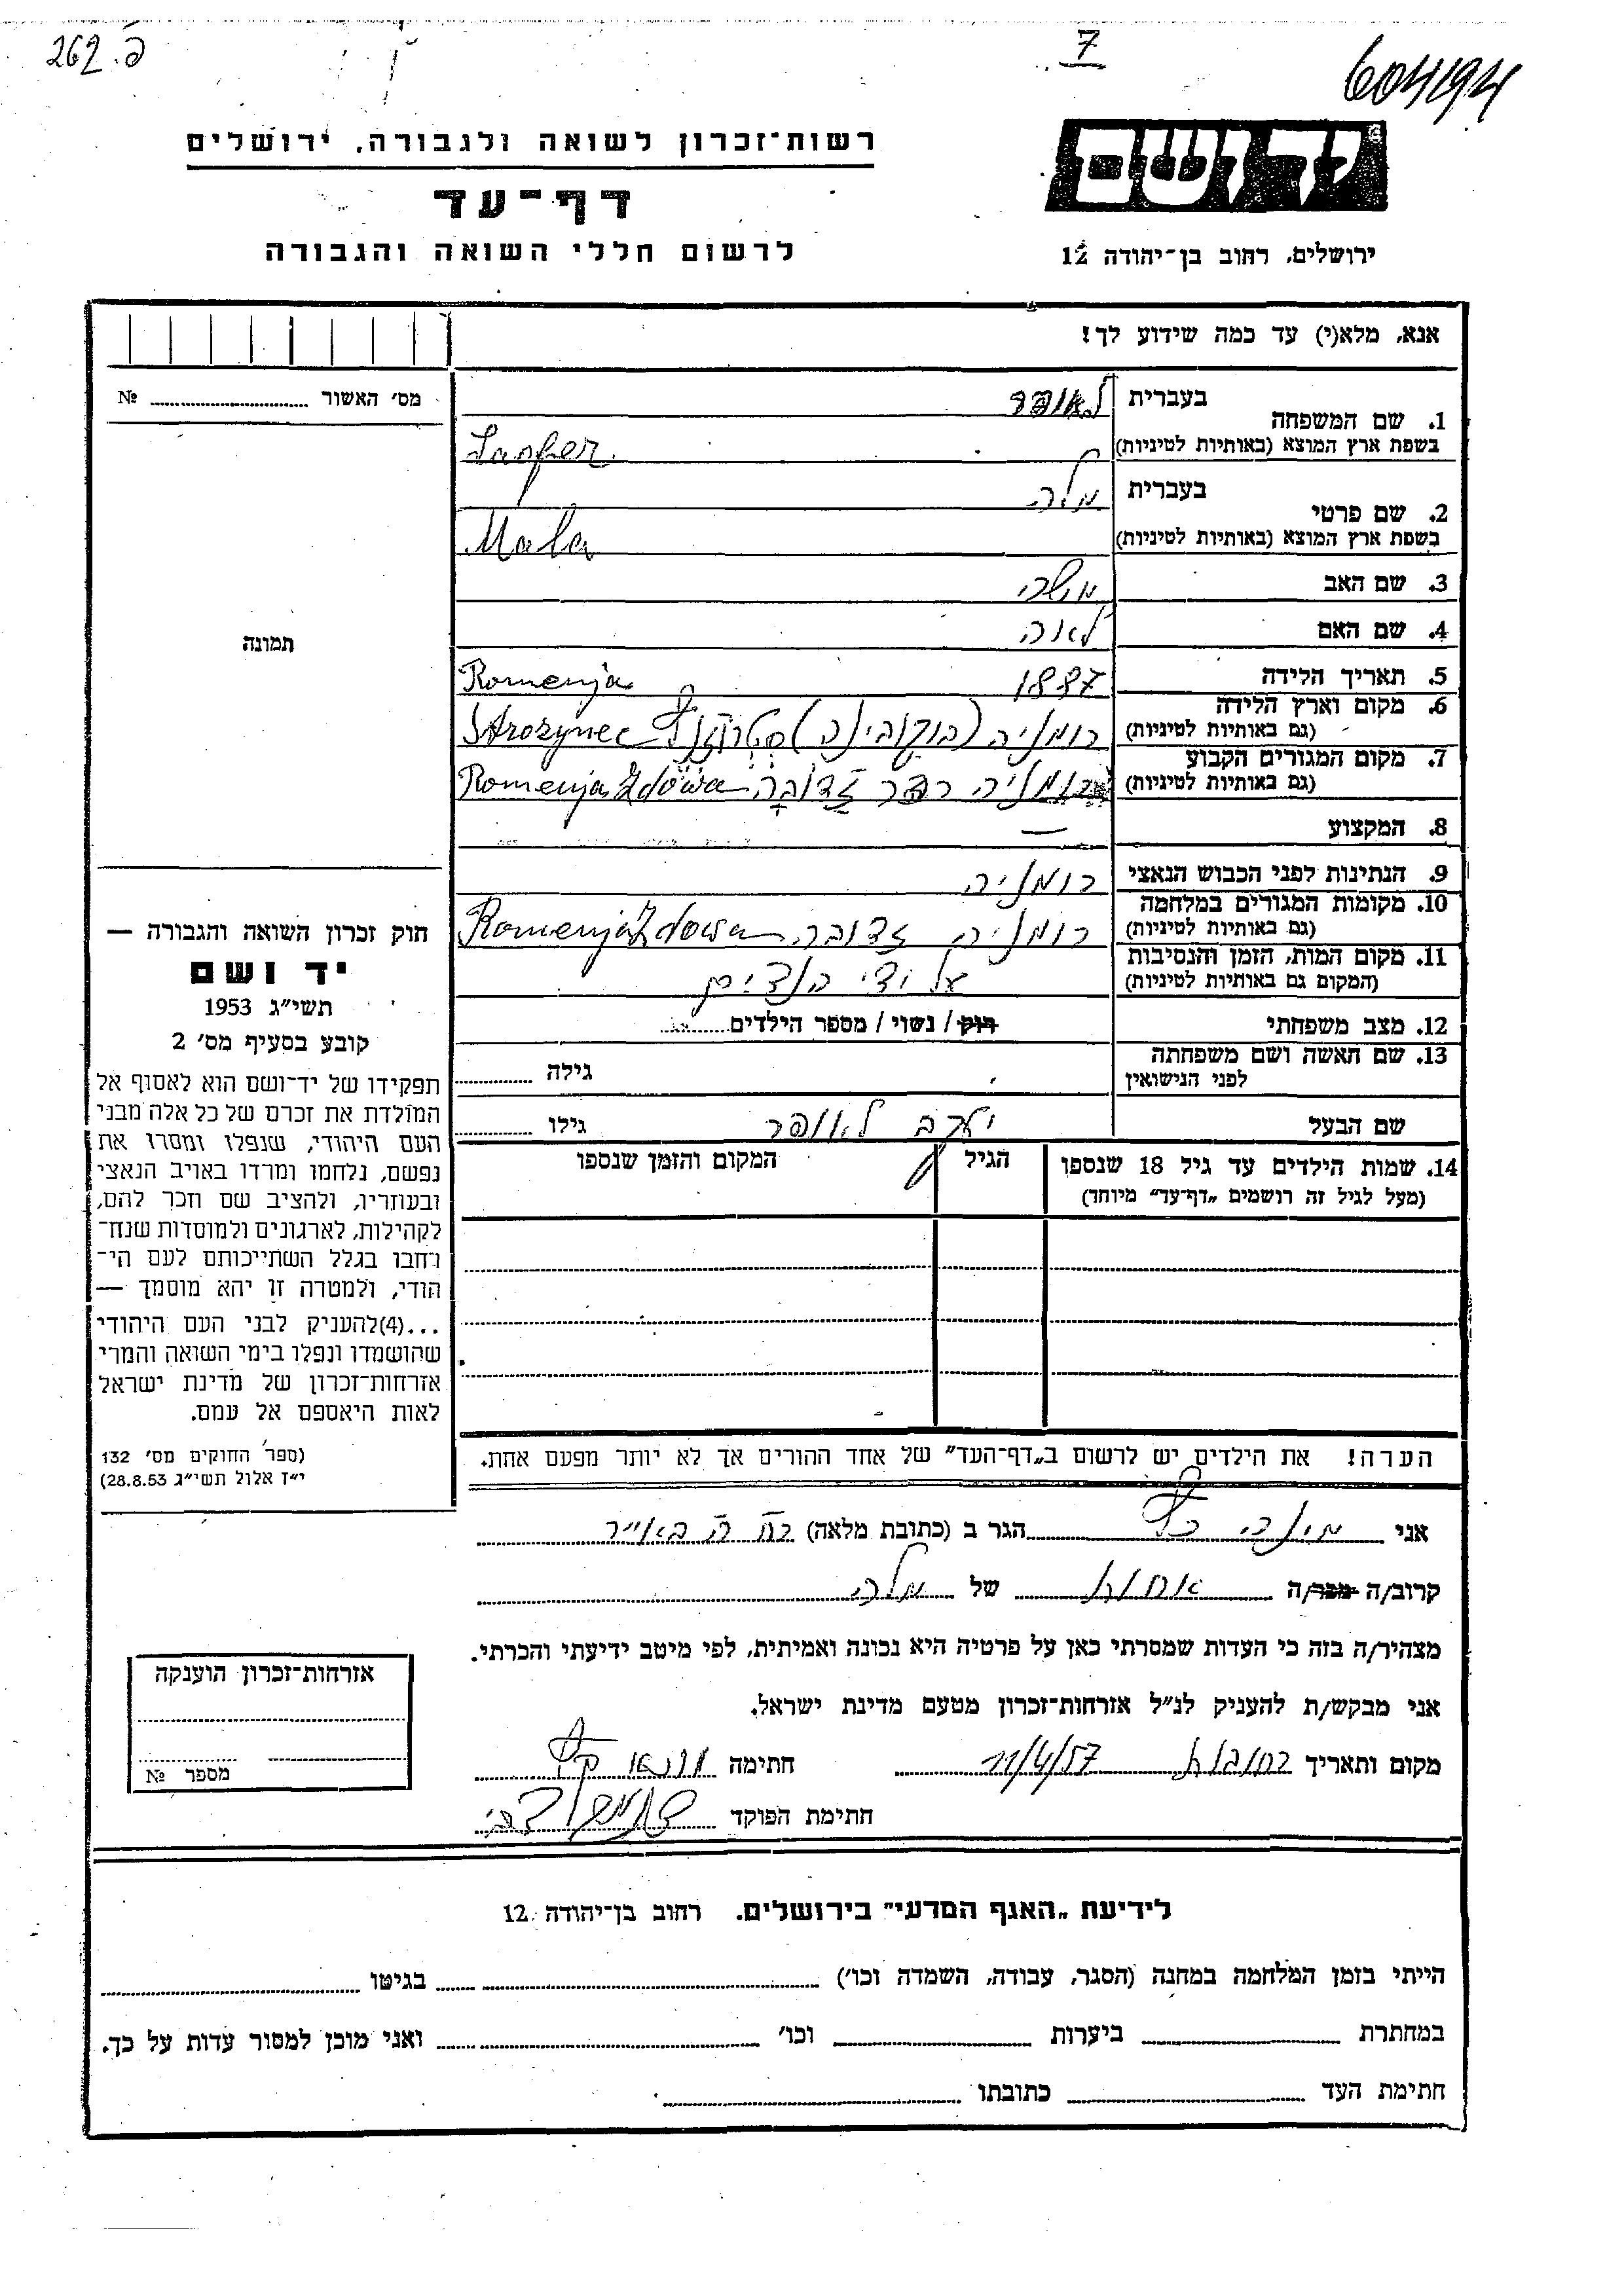 262.פ
7
604194
רשות־זכרון לשואה ולגבורה, ירושלים
יד ושם
דף־עד
לרשום חללי השואה והגבורה
ירושלים, רחוב בן־יהודה 12
אנא, מלא(י) עד כמה שידוע לך!
מס' האשור № 
1. שם המשפחה
בעברית לאופר
בשפת ארץ המוצא (באותיות לטיניות) Laufer
2. שם פרטי
בעברית מלה
בשפת ארץ המוצא (באותיות לטיניות) Mala
3. שם האב משה
4. שם האם לאה
5. תאריך הלידה 1887 Romenja
6. מקום וארץ הלידה
(גם באותיות לטיניות) רומניה (בוקובינה) Strozynec
7. מקום המגורים הקבוע
(גם באותיות לטיניות) רומניה כפר זדובה Romenja Zdowa
8. המקצוע —
9. הנתינות לפני הכבוש הנאצי רומניה
10. מקומות המגורים במלחמה
(גם באותיות לטיניות) רומניה זדובה Romenja Zdowa
11. מקום המות, הזמן והנסיבות
(המקום גם באותיות לטיניות) על ידי הנצים
12. מצב משפחתי רוק / נשוי / מספר הילדים
13. שם האשה ושם משפחתה
לפני הנישואין גילה
שם הבעל יעקב לאופר גילו
14. שמות הילדים עד גיל 18 שנספו
(מעל לגיל זה רושמים „דף־עד" מיוחד)
הגיל
המקום והזמן שנספו
תמונה
חוק זכרון השואה והגבורה —
יד ושם
תשי"ג 1953
קובע בסעיף מס' 2
תפקידו של יד־ושם הוא לאסוף אל
המולדת את זכרם של כל אלה מבני
העם היהודי, שנפלו ומסרו את
נפשם, נלחמו ומרדו באויב הנאצי
ובעוזריו, ולהציב שם וזכר להם,
לקהילות, לארגונים ולמוסדות שנח־
רבו בגלל השתייכותם לעם הי־
הודי, ולמטרה זו יהא מוסמך —
...(4)להעניק לבני העם היהודי
שהושמדו ונפלו בימי השואה והמרי
אזרחות־זכרון של מדינת ישראל
לאות היאספם אל עמם.
(ספר החוקים מס' 132
י"ז אלול תשי"ג 28.8.53)
הערה! את הילדים יש לרשום ב„דף־העד" של אחד ההורים אך לא יותר מפעם אחת.
אני הגר ב (כתובת מלאה)
קרוב/ה מכר/ה אחות של מלה
מצהיר/ה בזה כי העדות שמסרתי כאן על פרטיה היא נכונה ואמיתית, לפי מיטב ידיעתי והכרתי.
אני מבקש/ת להעניק לנ"ל אזרחות־זכרון מטעם מדינת ישראל.
מקום ותאריך רחובות 11/4/57 חתימה
חתימת הפוקד
אזרחות־זכרון הוענקה
מספר №
לידיעת „האגף המדעי" בירושלים. רחוב בן־יהודה 12
הייתי בזמן המלחמה במחנה (הסגר, עבודה, השמדה וכו') בגיטו
במחתרת ביערות וכו' ואני מוכן למסור עדות על כך.
חתימת העד כתובתו